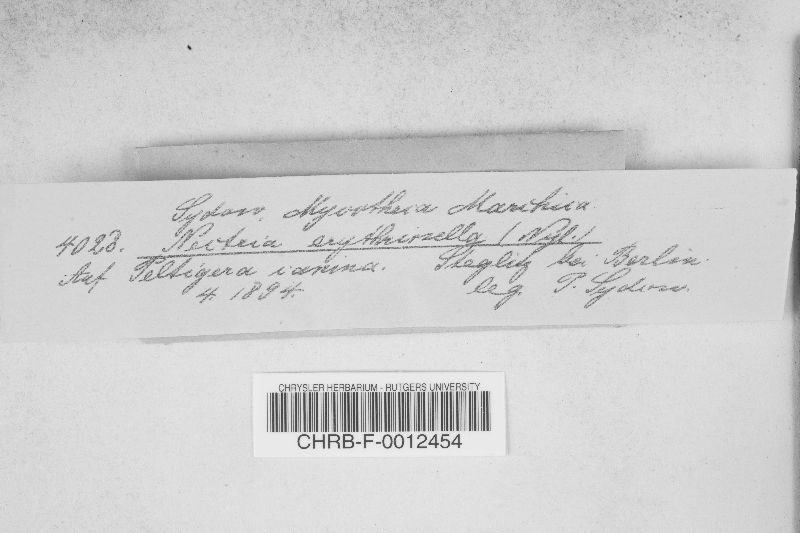 Sydow, Mycotheca Marchica.
4028. Nectria erythrinella (Nyl.)
Auf Peltigera canina. Steglitz bei Berlin.
4. 1894. leg. P. Sydow.
CHRYSLER HERBARIUM - RUTGERS UNIVERSITY
CHRB-F-0012454